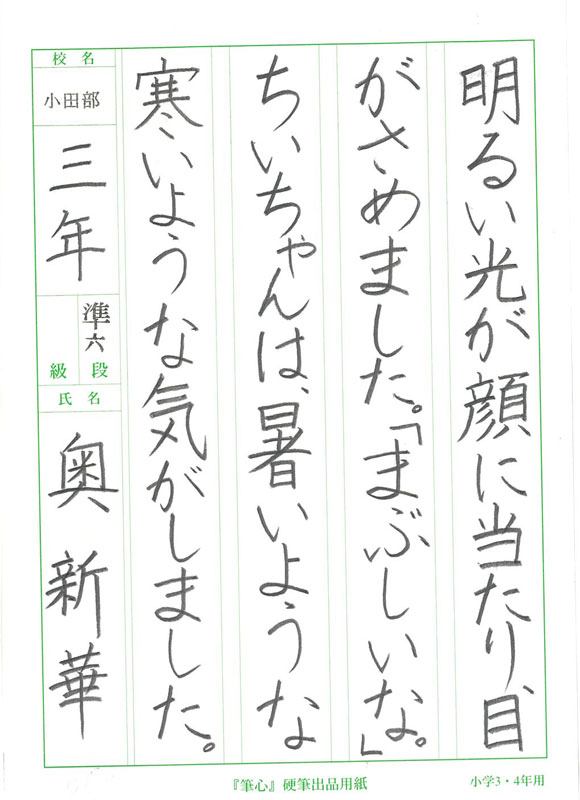 明るい光が顔に当たり、目
がさめました。「まぶしいな。」
ちいちゃんは、暑いような
寒いような気がしました。
校名
小田部
三年
準六
段
級
氏名
奥新華
『筆心』硬筆出品用紙
小学3・4年用